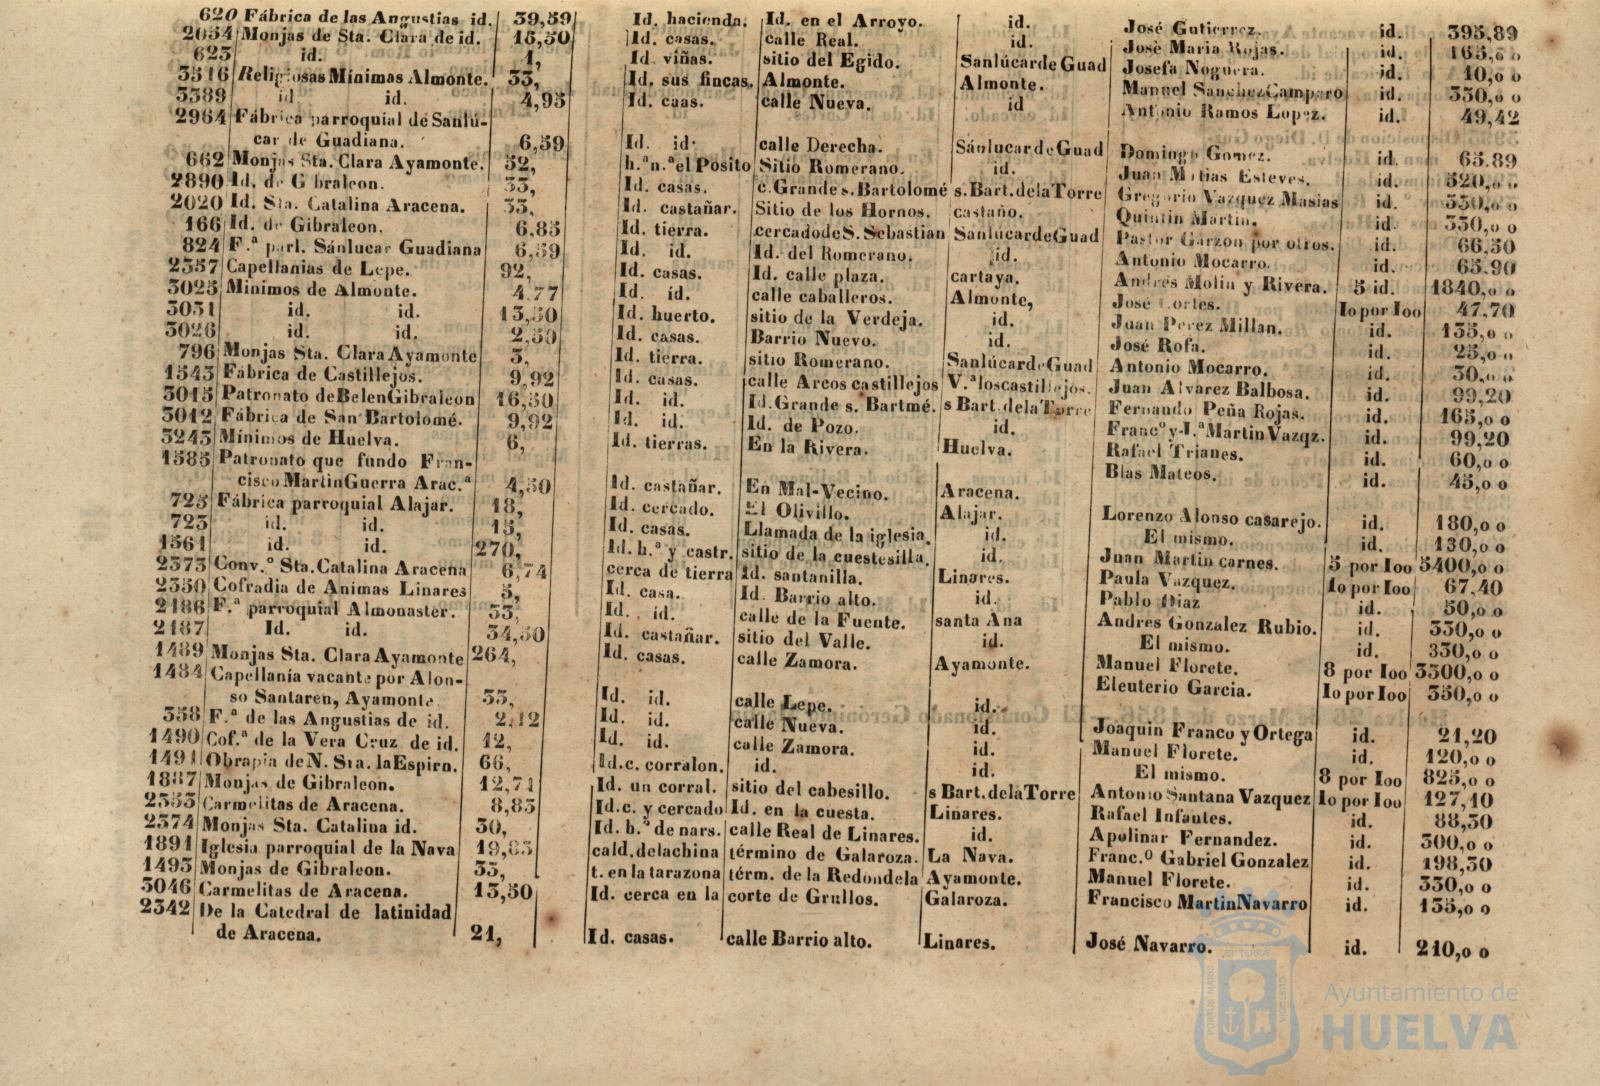 620 Fábrica de las Angustias id. 39,59 Id. hacienda. Id. en el Arroyo. id. José Gutierrez. id. 395,89
2054 Monjas de Sta. Clara de id. 15,50 Id. casas. calle Real. id. José Maria Rojas. id. 165,00
623 id. 1, Id. viñas. sitio del Egido. Sanlúcar de Guad Josefa Noguera. id. 10,00
3516 Religiosas Mínimas Almonte. 33, Id. sus fincas. Almonte. Almonte. Manuel Sanchez Camparo id. 330,00
3389 id id. 4,95 Id. caas. calle Nueva. id Antonio Ramos Lopez. id. 49,42
2964 Fábrica parroquial de Sanlú-
car de Guadiana. 6,59 Id. id. calle Derecha. Sánlucar de Guad Domingo Gomez. id. 65.89
662 Monjas Sta. Clara Ayamonte. 52, h.ª n.ª el Posito Sitio Romerano. id. Juan Matias Esteves. id. 520,00
2890 Id. de Gibraleon. 33, Id. casas. c. Grande s. Bartolomé s. Bart. de la Torre Gregorio Vazquez Masias id. 330,00
2020 Id. Sta. Catalina Aracena. 33, Id. castañar. Sitio de los Hornos. castaño. Quintin Martin. id. 330,00
166 Id. de Gibraleon. 6,85 Id. tierra. cercado de S. Sebastian Sanlúcar de Guad Pastor Garzon por otros. id. 66,50
824 F.ª parl. Sánlucar Guadiana 6,59 Id. id. Id. del Romerano. id. Antonio Mocarro. id. 65.90
2357 Capellanias de Lepe. 92, Id. casas. Id. calle plaza. cartaya. Andres Molin y Rivera. 5 id. 1840,00
3025 Minimos de Almonte. 4,77 Id. id. calle caballeros. Almonte, José Cortes. 10 por 100 47,70
3031 id. id. 13,50 Id. huerto. sitio de la Verdeja. id. Juan Perez Millan. id. 135,00
3026 id. id. 2,50 Id. casas. Barrio Nuevo. id. José Rofa. id. 25,00
796 Monjas Sta. Clara Ayamonte 3, Id. tierra. sitio Romerano. Sanlúcar de Guad Antonio Mocarro. id. 30,00
1543 Fábrica de Castillejos. 9,92 Id. casas. calle Arcos castillejos V.ª los castillejos. Juan Alvarez Balbosa. id. 99,20
3015 Patronato de Belen Gibraleon 16,50 Id. id. Id. Grande s. Bartmé. s Bart. de la Torre Fernando Peña Rojas. id. 165,00
3012 Fábrica de San Bartolomé. 9,92 Id. id. Id. de Pozo. id. Franc.º y J.ª Martin Vazqz. id. 99,20
3243 Mínimos de Huelva. 6, Id. tierras. En la Rivera. Huelva. Rafael Trianes. id. 60,00
1585 Patronato que fundo Fran-
cisco Martin Guerra Arac.ª 4,50 Id. castañar. En Mal-Vecino. Aracena. Blas Mateos. id. 45,00
725 Fábrica parroquial Alajar. 18, Id. cercado. El Olivillo. Alajar. Lorenzo Alonso casarejo. id. 180,00
723 id. id. 15, Id. casas. Llamada de la iglesia. id. El mismo. id. 130,00
1561 id. id. 270, Id. h.ª y castr. sitio de la cuestesilla. id. Juan Martin carnes. 5 por 100 5400,00
2373 Conv.º Sta. Catalina Aracena 6,74 cerca de tierra Id. santanilla. Linares. Paula Vazquez. 10 por 100 67,40
2350 Cofradia de Animas Linares 5, Id. casa. Id. Barrio alto. id. Pablo Diaz id. 50,00
2186 F.ª parroquial Almonaster. 33, Id. id. calle de la Fuente. santa Ana Andres Gonzalez Rubio. id. 330,00
2187 Id. id. 34,50 Id. castañar. sitio del Valle. id. El mismo. id. 330,00
1489 Monjas Sta. Clara Ayamonte 264, Id. casas. calle Zamora. Ayamonte. Manuel Florete. 8 por 100 3300,00
1484 Capellanía vacante por Alon-
so Santaren, Ayamonte 35, Id. id. calle Lepe. id. Eleuterio Garcia. 10 por 100 350,00
358 F.ª de las Angustias de id. 2,12 Id. id. calle Nueva. id. Joaquin Franco y Ortega id. 21,20
1490 Cof.ª de la Vera Cruz de id. 12, Id. id. calle Zamora. id. Manuel Florete. id. 120,00
1491 Obrapia de N. Sta. la Espirn. 66, Id. c. corralon. id. id. El mismo. 8 por 100 825,00
1887 Monjas de Gibraleon. 12,71 Id. un corral. sitio del cabesillo. s Bart. de la Torre Antonio Santana Vazquez 10 por 100 127,10
2353 Carmelitas de Aracena. 8,83 Id. c. y cercado Id. en la cuesta. Linares. Rafael Infantes. id. 88,30
2374 Monjas Sta. Catalina id. 30, Id. h.ª de nars. calle Real de Linares. id. Apolinar Fernandez. id. 300,00
1891 Iglesia parroquial de la Nava 19,83 cald. de la china término de Galaroza. La Nava. Franc.º Gabriel Gonzalez id. 198,30
1493 Monjas de Gibraleon. 33, t. en la tarazona térm. de la Redondela Ayamonte. Manuel Florete. id. 330,00
3046 Carmelitas de Aracena. 13,50 Id. cerca en la corte de Grullos. Galaroza. Francisco Martin Navarro id. 135,00
2342 De la Catedral de latinidad
de Aracena. 21, Id. casas. calle Barrio alto. Linares. José Navarro. id. 210,00
Ayuntamiento de
HUELVA